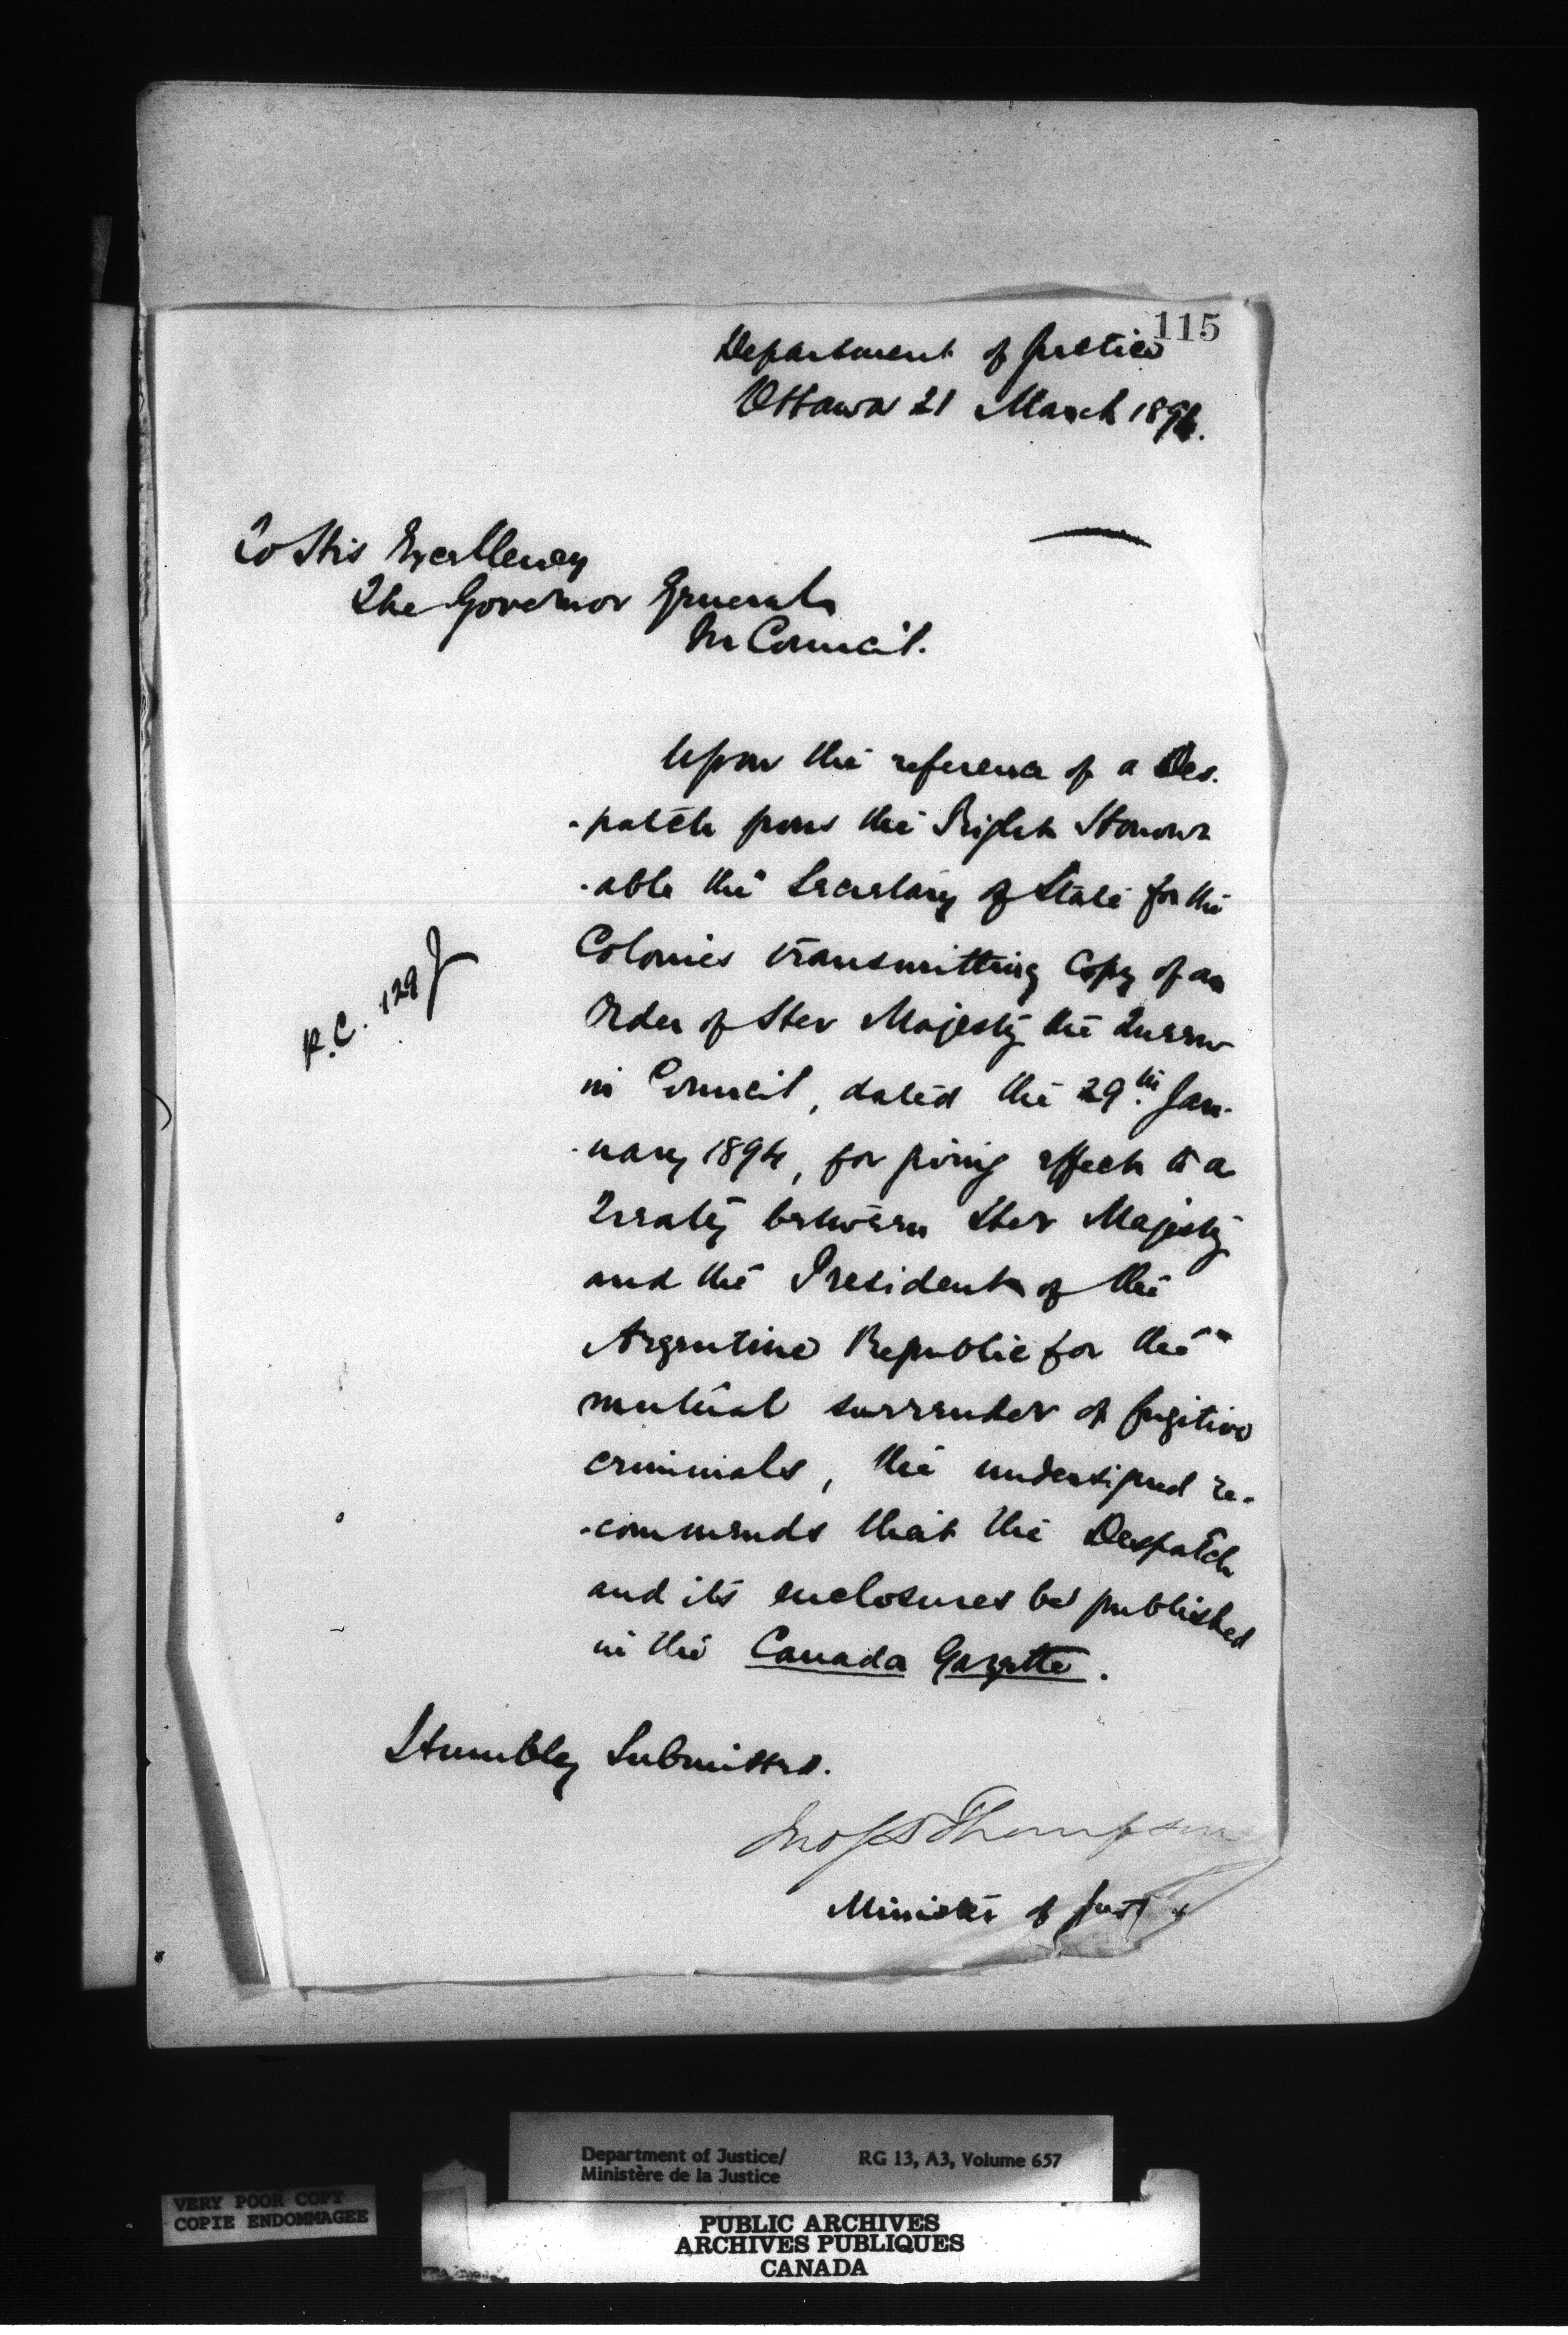 115
Department of Justice
Ottawa 21 March 1894.
To His Excellency
The Governor General
In Council.
Upon the reference of a Des-
-patch from the Right Honour
-able the Secretary of State for the
Colonies transmitting Copy of an
Order of Her Majesty the Queen
in Council, dated the 29th Jan-
-uary 1894, for giving effect to a
Treaty between Her Majesty
and the President of the
Argentine Republic for the
mutual surrender of fugitive
criminals, the undersigned re-
-commends that the Despatch
and its enclosures be published
in the Canada Gazette.
R.C. 129 J
Humbly Submitted.
Jno S D Thompson
Minister of Justice
Department of Justice/ RG 13, A3, Volume 657
Ministère de la Justice
VERY POOR COPY
COPIE ENDOMMAGEE
PUBLIC ARCHIVES
ARCHIVES PUBLIQUES
CANADA